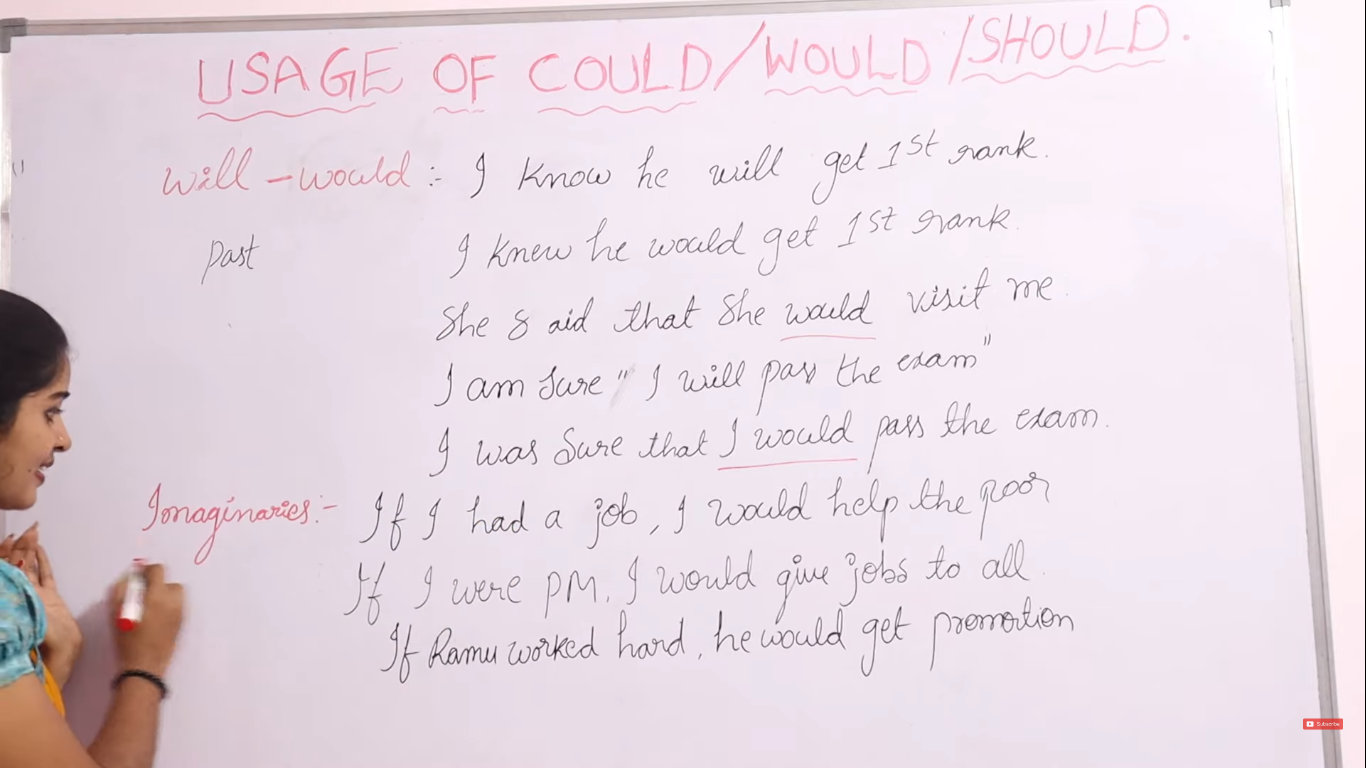 USAGE OF COULD/WOULD/SHOULD.
Will - would :- I know he will get 1st rank.
Past I knew he would get 1st rank.
She said that She would visit me.
I am Sure " I will pass the exam"
I was Sure that I would pass the exam.
Imaginaries:- If I had a job, I would help the poor
If I were PM, I would give jobs to all.
If Ramu worked hard, he would get promotion
Subscribe